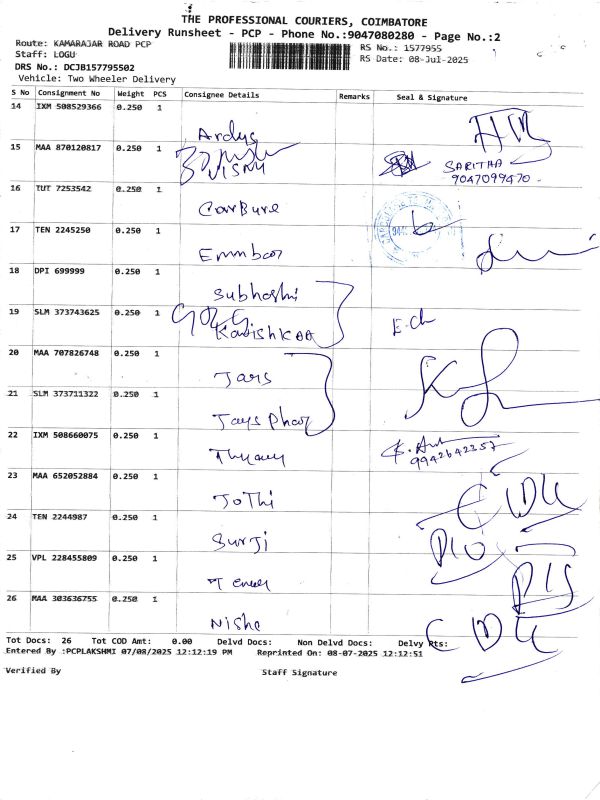 THE PROFESSIONAL COURIERS, COIMBATORE
Delivery Runsheet - PCP - Phone No.:9047080280 - Page No.:2
Route: KAMARAJAR ROAD PCP
RS No.: 1577955
Staff: LOGU
RS Date: 08-Jul-2025
DRS No.: DCJB157795502
Vehicle: Two Wheeler Delivery
S No Consignment No Weight PCS Consignee Details Remarks Seal & Signature
14 IXM 508529366 0.250 1
Ardys
15 MAA 870120817 0.250 1
SARITHA
9047099470
16 TUT 7253542 0.250 1
CarBure
17 TEN 2245250 0.250 1
18 DPI 699999 0.250 1
Subhashi
19 SLM 373743625 0.250 1
20 MAA 707826748 0.250 1
Jars
21 SLM 373711322 0.250 1
22 IXM 508660075 0.250 1
9942642357
23 MAA 652052884 0.250 1
JoThi
24 TEN 2244987 0.250 1
SurJi
25 VPL 228455809 0.250 1
26 MAA 303636755 0.250 1
Nisha
Tot Docs: 26 Tot COD Amt: 0.00 Delvd Docs: Non Delvd Docs: Delvy Pts:
Entered By :PCPLAKSHMI 07/08/2025 12:12:19 PM Reprinted On: 08-07-2025 12:12:51
Verified By Staff Signature